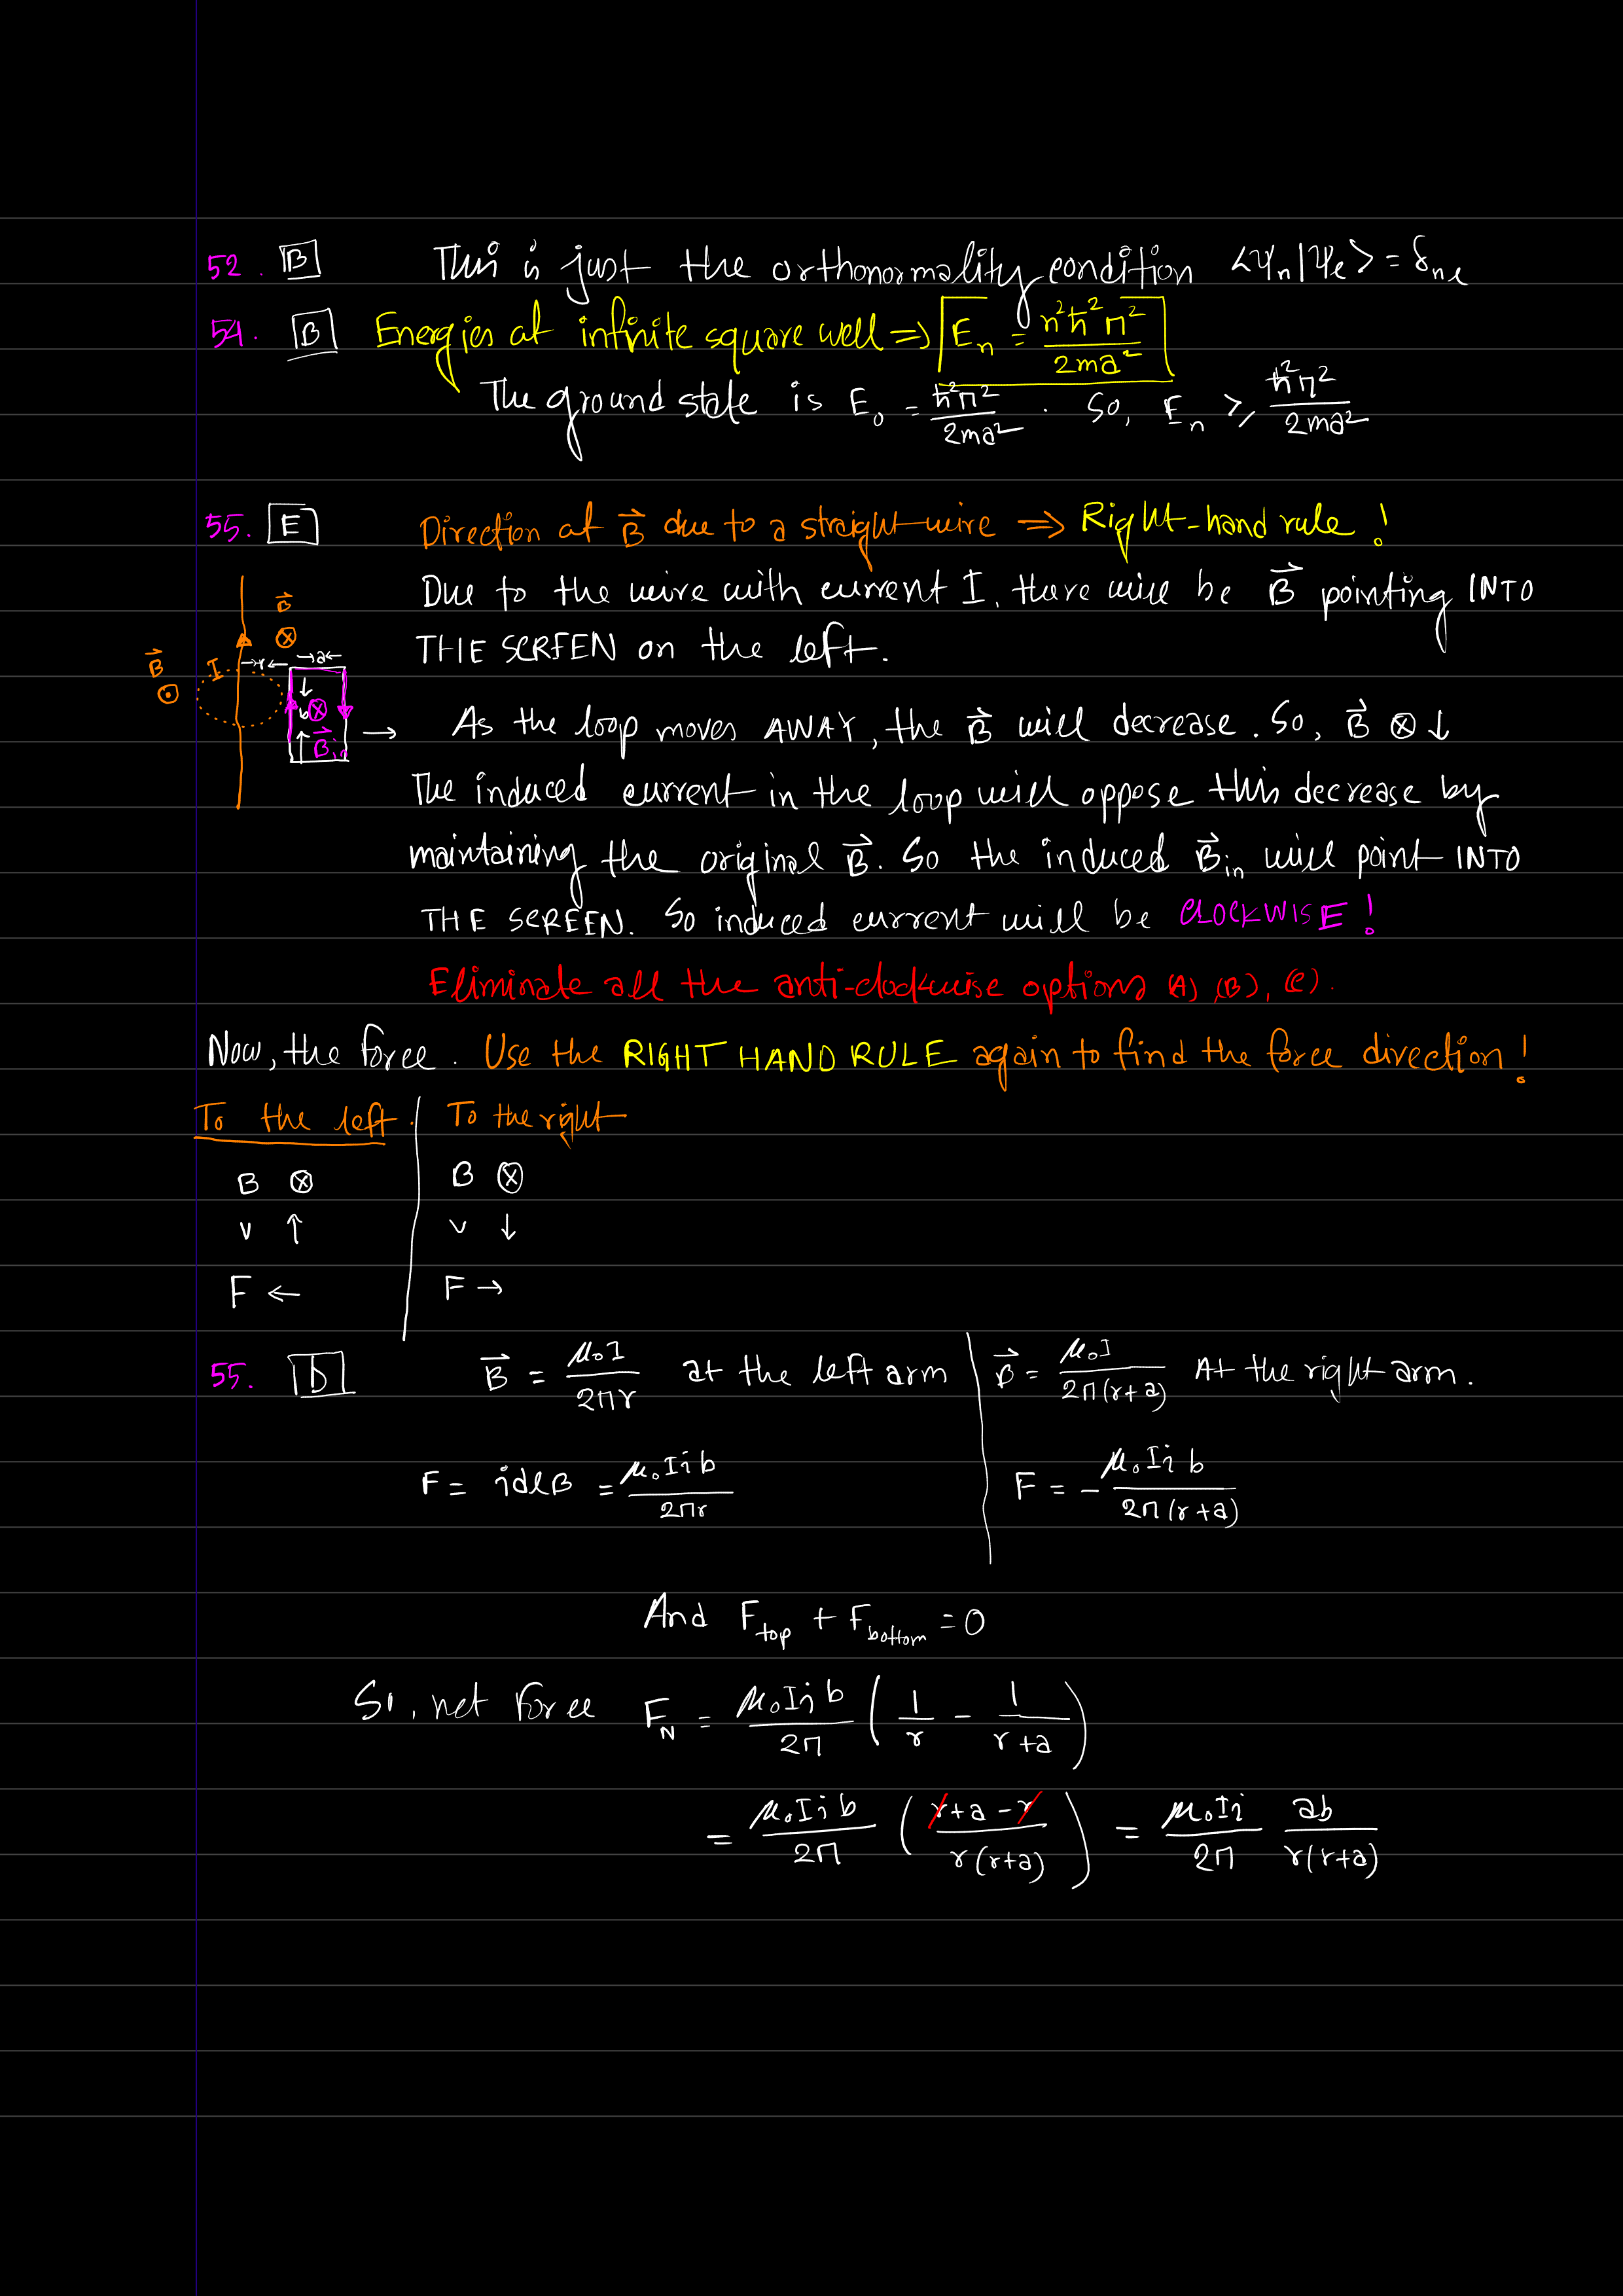 52. B This is just the orthonormality condition <ψn|ψl> = δnl
54. B Energies at infinite square well => En = n²ħ²π²/2ma²
The ground state is E0 = ħ²π²/2ma². So, En ≥ ħ²π²/2ma²
55. E Direction at B⃗ due to a straight wire => Right-hand rule!
Due to the wire with current I, there will be B⃗ pointing INTO
THE SCREEN on the left.
B⃗ ⊙ I B⃗ ⊗ →r← →a← ↓ b ↑ ⊗ B⃗in →
As the loop moves AWAY, the B⃗ will decrease. So, B⃗ ⊗ ↓
The induced current in the loop will oppose this decrease by
maintaining the original B⃗. So the induced B⃗in will point INTO
THE SCREEN. So induced current will be CLOCKWISE!
Eliminate all the anti-clockwise options (A), (B), (C).
Now, the force. Use the RIGHT HAND RULE again to find the force direction!
To the left. | To the right
B ⊗ | B ⊗
v ↑ | v ↓
F ← | F →
55. D B⃗ = μ0I/2πr at the left arm | B⃗ = μ0I/2π(r+a) At the right arm.
F = idlB = μ0Iib/2πr | F = - μ0Iib/2π(r+a)
And Ftop + Fbottom = 0
So, net force FN = μ0Iib/2π (1/r - 1/r+a)
= μ0Iib/2π (r+a-r/r(r+a)) = μ0Ii/2π ab/r(r+a)